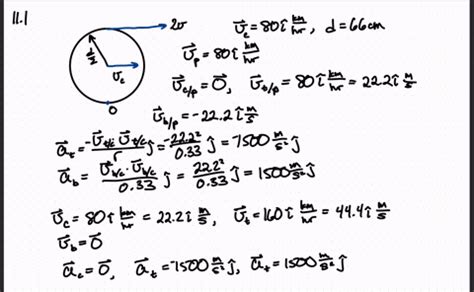 11.1
2v
v⃗c = 80 î km/hr, d = 66cm
d/2
v⃗p = 80 î km/hr
v⃗c
v⃗c/p = 0⃗, v⃗t/p = 80 î km/hr = 22.2 î m/s
0
v⃗b/p = -22.2 î m/s
a⃗t = -v⃗t/c v⃗t/c / r ĵ = -22.2² / 0.33 ĵ = 7500 m/s² ĵ
a⃗b = v⃗b/c · v⃗b/c / 0.33 ĵ = 22.2² / 0.33 ĵ = 1500 m/s² ĵ
v⃗c = 80 î km/hr = 22.2 î m/s, v⃗t = 160 î km/hr = 44.4 î m/s
v⃗b = 0⃗
a⃗c = 0⃗, a⃗t = -1500 m/s² ĵ, a⃗t = 1500 m/s² ĵ